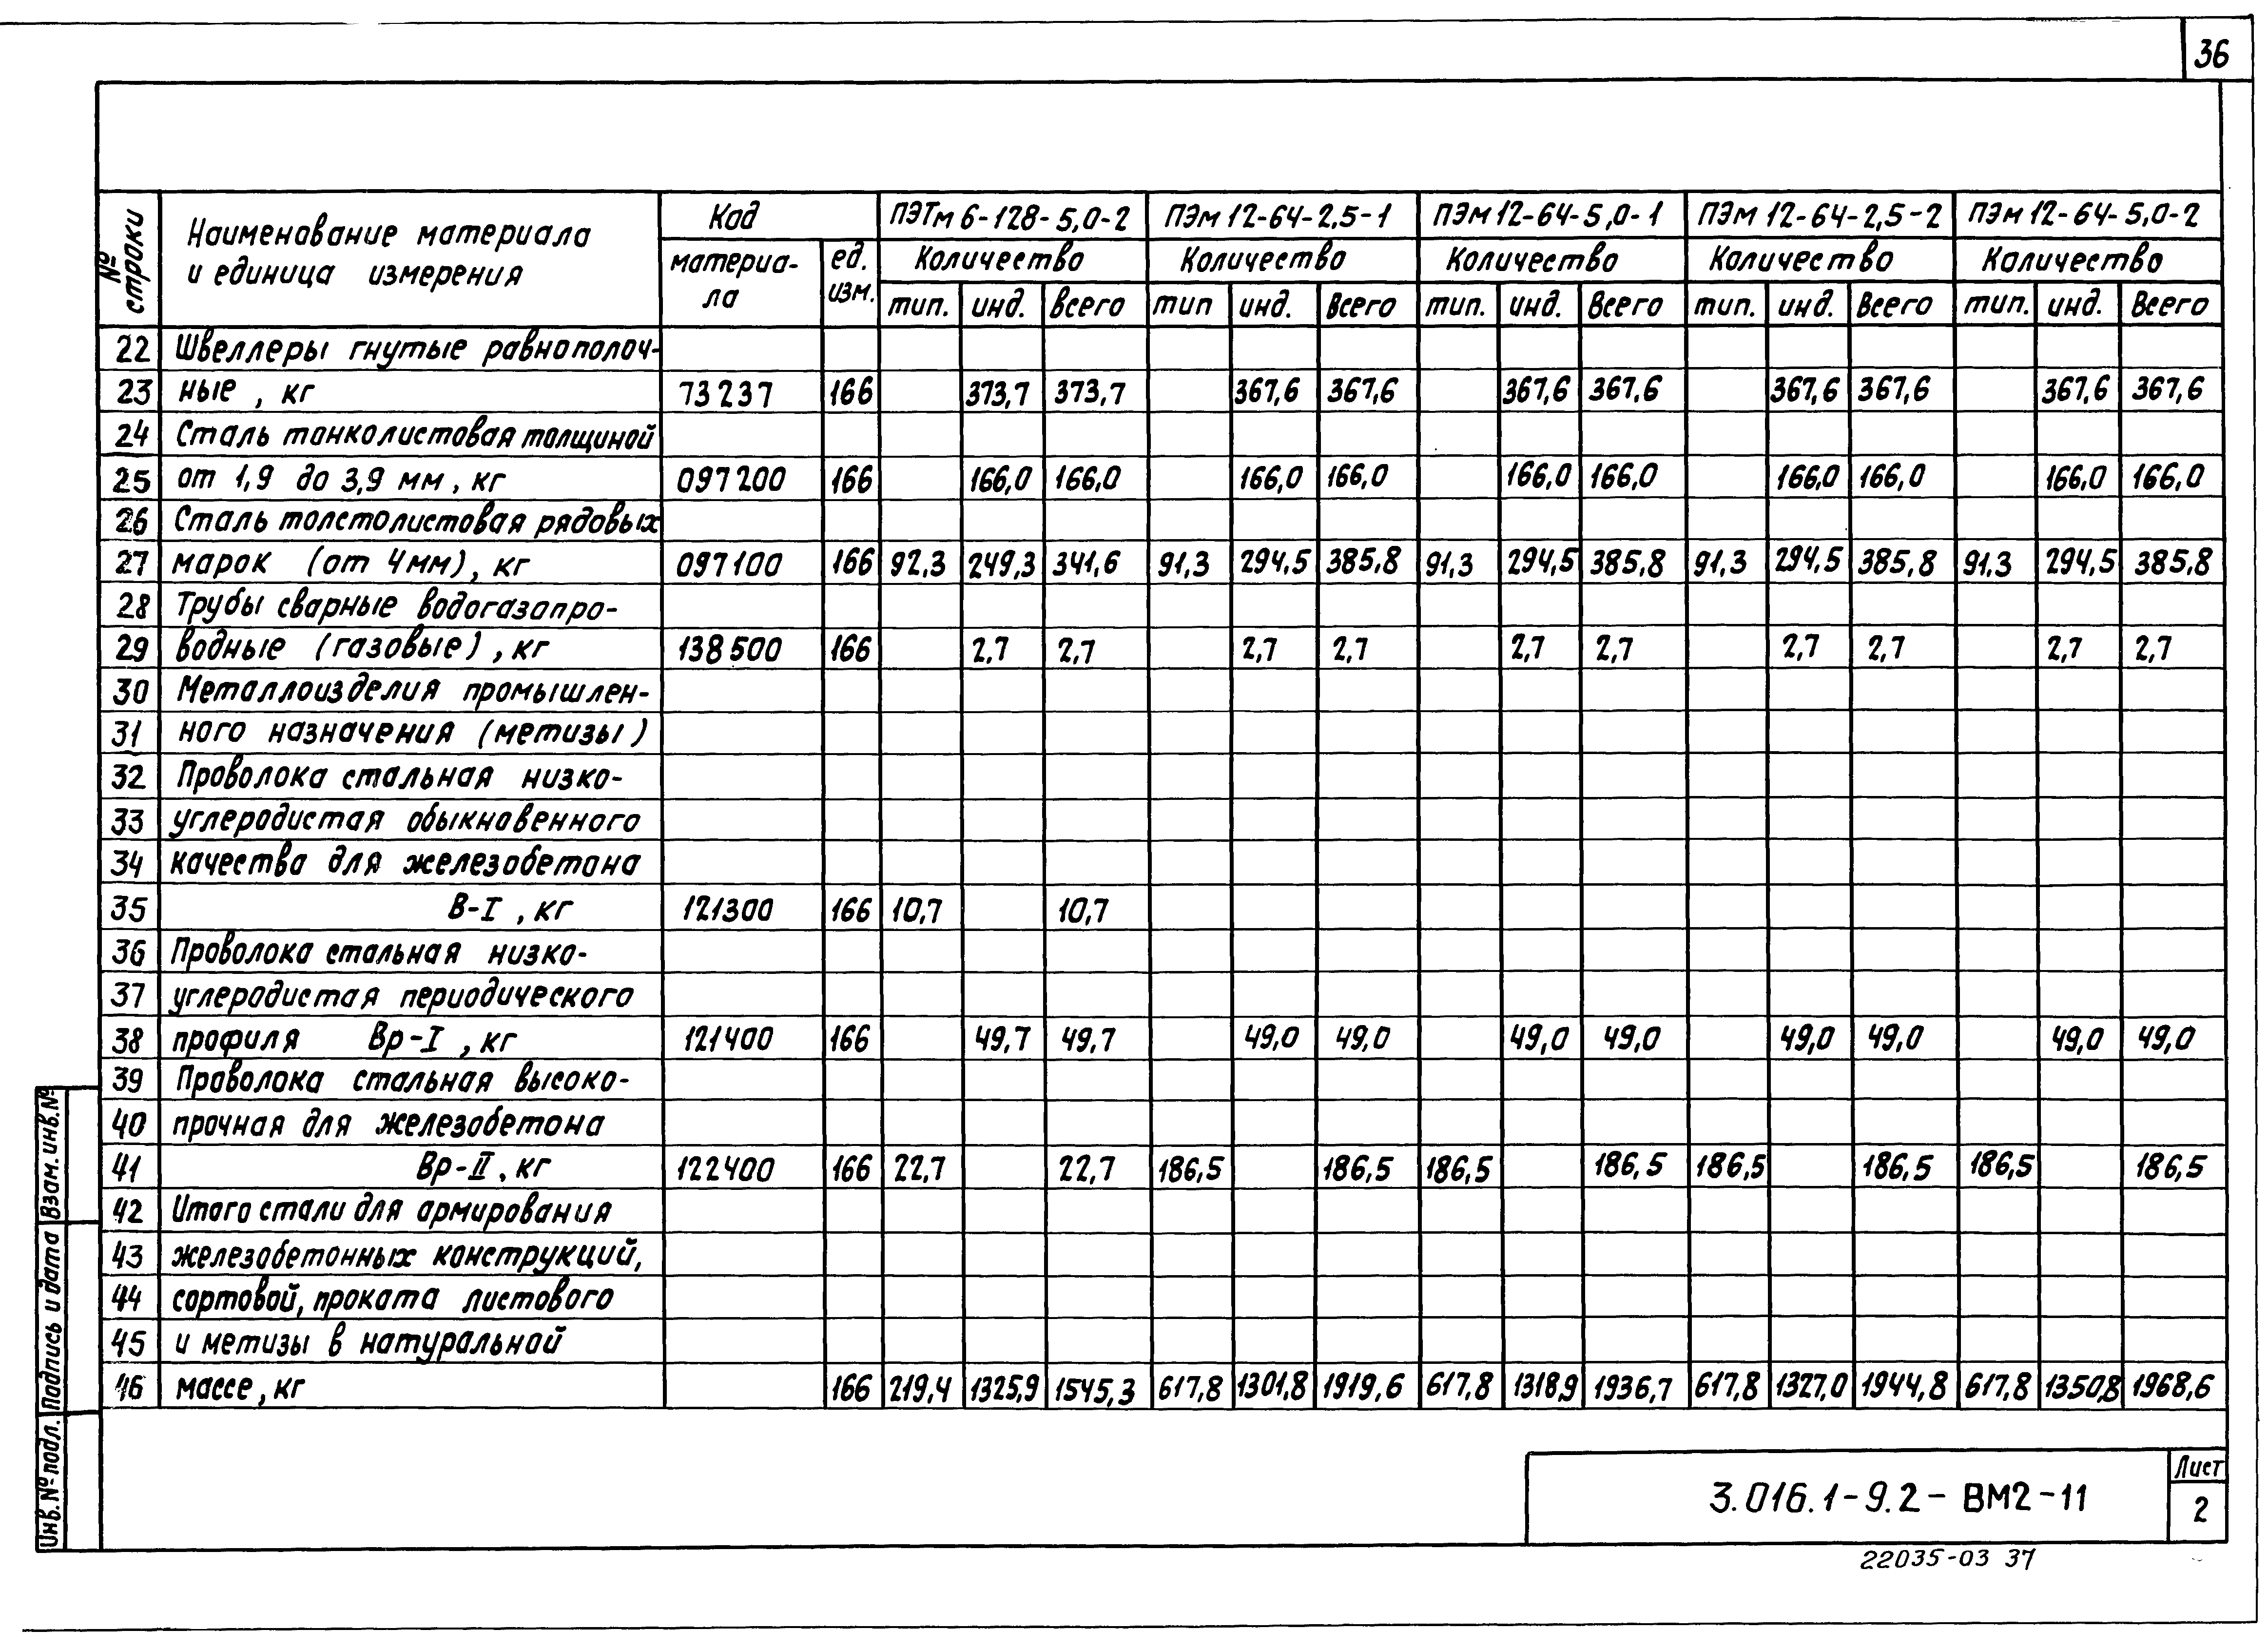 36
№ строки
Наименование материала и единица измерения
Код
ПЭТм 6-128-5,0-2 ПЭм 12-64-2,5-1 ПЭм 12-64-5,0-1 ПЭм 12-64-2,5-2 ПЭм 12-64-5,0-2
материа-ла ед. изм. Количество Количество Количество Количество Количество
тип. инд. Всего тип инд. Всего тип. инд. Всего тип. инд. Всего тип. инд. Всего
22 Швеллеры гнутые равнополоч-
23 ные, кг 73237 166 373,7 373,7 367,6 367,6 367,6 367,6 367,6 367,6 367,6 367,6
24 Сталь тонколистовая толщиной
25 от 1,9 до 3,9 мм, кг 097200 166 166,0 166,0 166,0 166,0 166,0 166,0 166,0 166,0 166,0 166,0
26 Сталь толстолистовая рядовых
27 марок (от 4мм), кг 097100 166 92,3 249,3 341,6 91,3 294,5 385,8 91,3 294,5 385,8 91,3 294,5 385,8 91,3 294,5 385,8
28 Трубы сварные водогазопро-
29 водные (газовые), кг 138500 166 2,7 2,7 2,7 2,7 2,7 2,7 2,7 2,7 2,7 2,7
30 Металлоизделия промышлен-
31 ного назначения (метизы)
32 Проволока стальная низко-
33 углеродистая обыкновенного
34 качества для железобетона
35 В-I, кг 121300 166 10,7 10,7
36 Проволока стальная низко-
37 углеродистая периодического
38 профиля Вр-I, кг 121400 166 49,7 49,7 49,0 49,0 49,0 49,0 49,0 49,0 49,0 49,0
39 Проволока стальная высоко-
40 прочная для железобетона
41 Вр-II, кг 122400 166 22,7 22,7 186,5 186,5 186,5 186,5 186,5 186,5 186,5 186,5
42 Итого стали для армирования
43 железобетонных конструкций,
44 сортовой, проката листового
45 и метизы в натуральной
46 массе, кг 166 219,4 1325,9 1545,3 617,8 1301,8 1919,6 617,8 1318,9 1936,7 617,8 1327,0 1944,8 617,8 1350,8 1968,6
Инв. № подл. Подпись и дата Взам. инв. №
3.016.1-9.2-ВМ2-11
Лист
2
22035-03 37